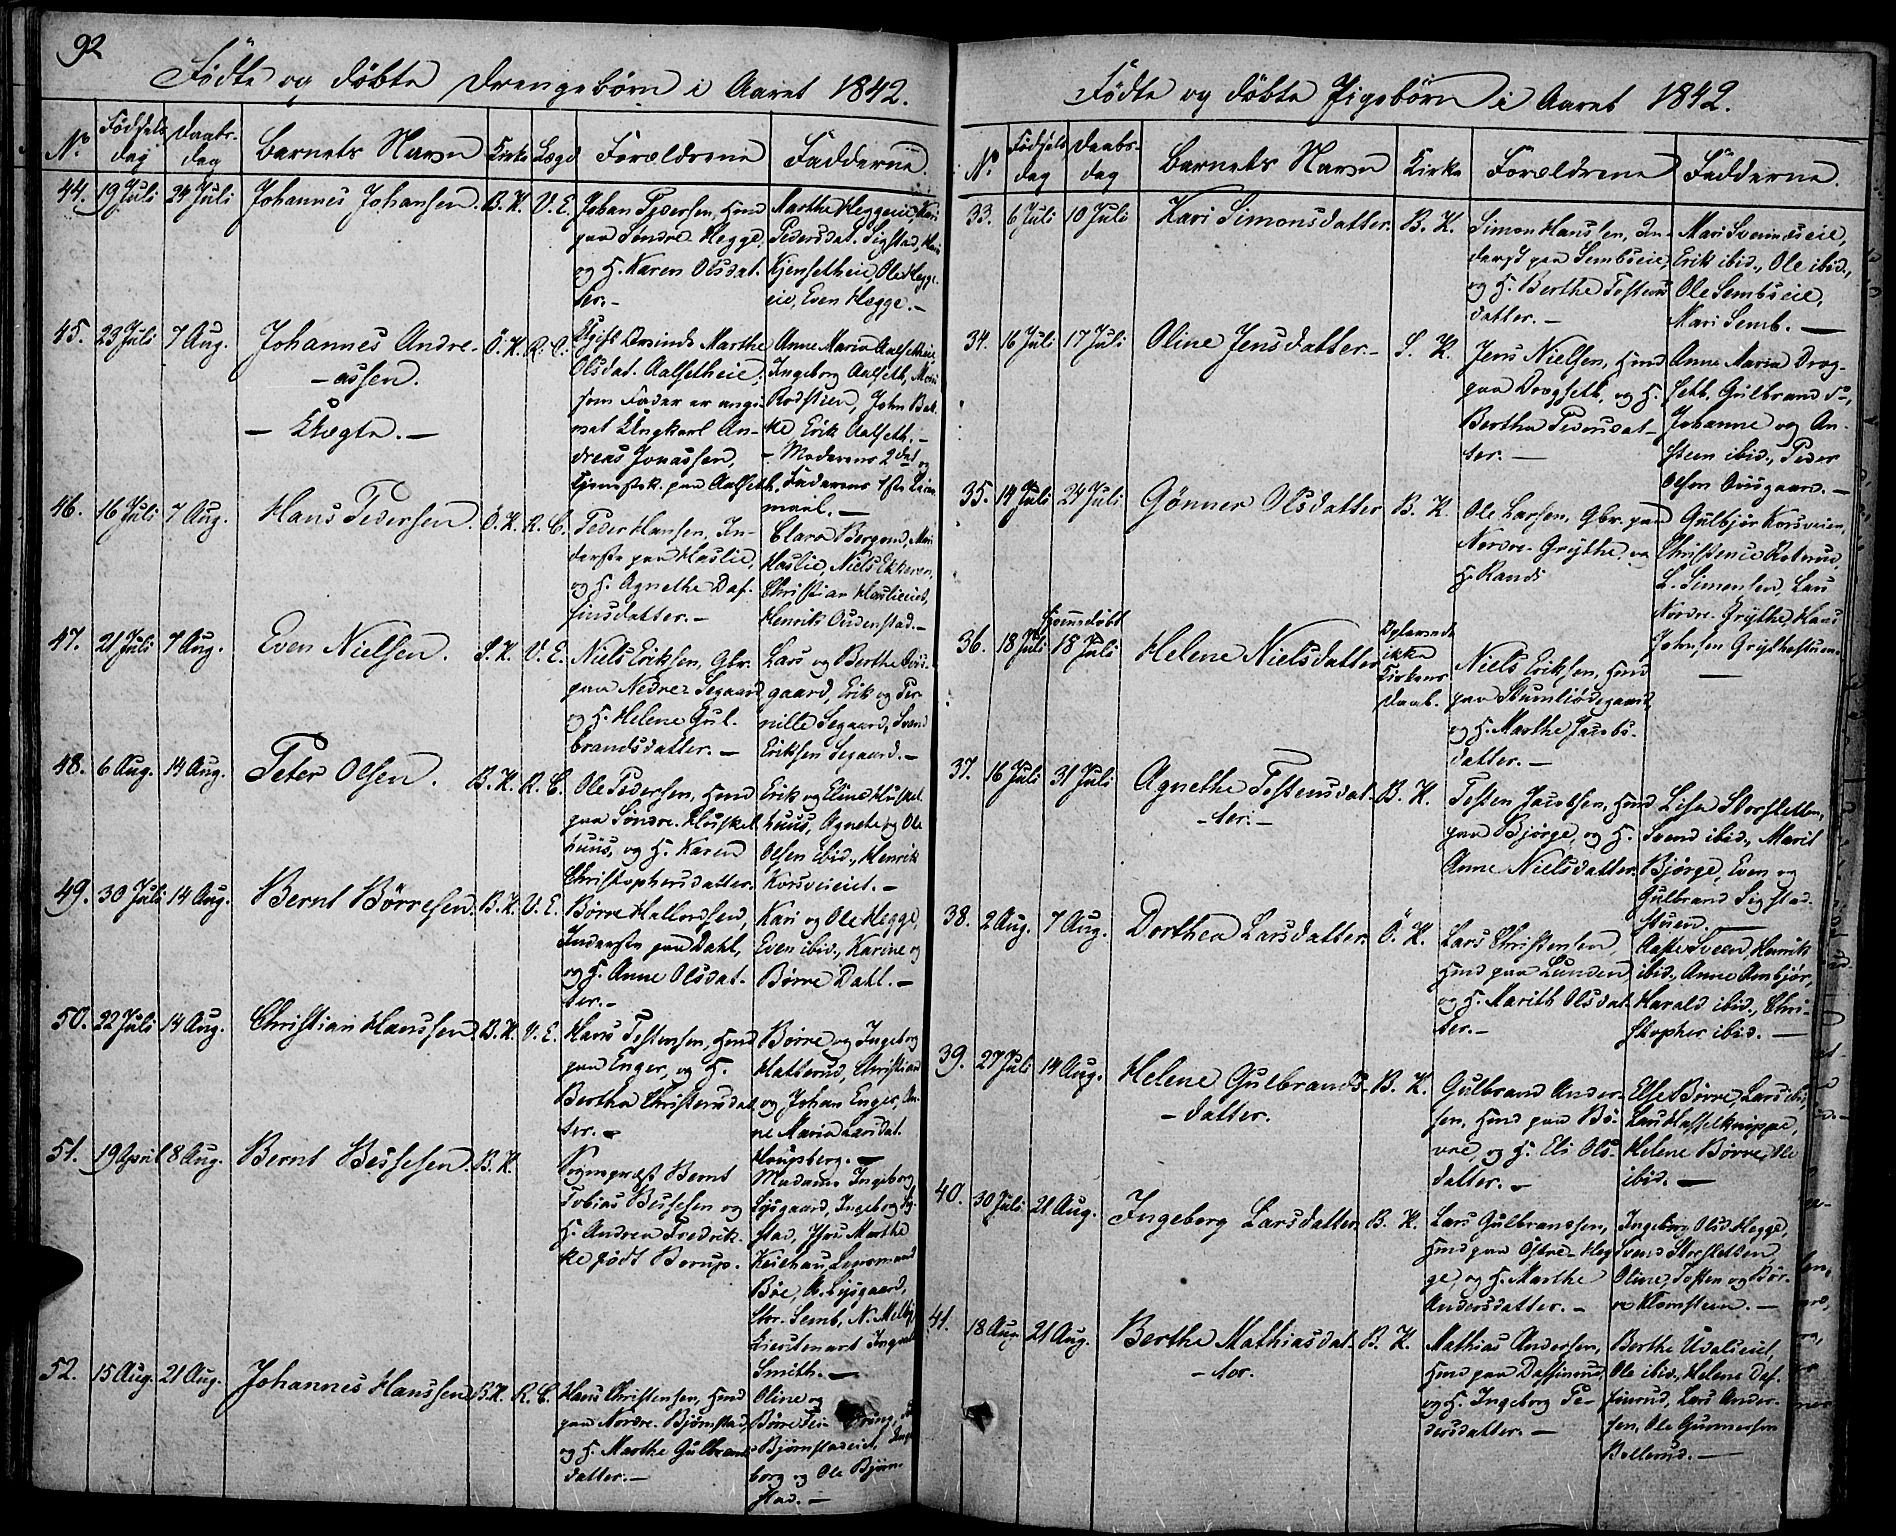 92
Födte og döbte Drengebørn i Aaret 1842.
No Födselsdag Daabsdag Barnets Navn Kirke Lægd Forældrene Fadderne.
44. 19 Juli 24 Juli Johannes Johansen. B. K. V. E.
Johan Pedersen, Huusmd
paa Søndre Hegge,
og H. Karen Olsdat-
ter.-
Marthe Heggeeie, Kari
Pedersdat. Sigstad, Mari
Kjensetheie, Ole Hegge-
eie, Even Hegge.-
45. 23 Juli 7 Aug. Johannes Andre-
-assen.
- Uægte. -
Ö. K. R. C.
Olsdat. Aalsetheie,
som Fader er angi-
vet Ungkarl An-
dreas Jonassen,
paa Aalseth.
Anne Maria Aalsetheie,
Ingeborg Aalseth, Mari
Rodstien, John Bak-
ke, Erik Aalseth.-
- Moderens 2det og
Faderens 1ste Leier-
maal.-
46. 16 Juli 7 Aug. Hans Pedersen. Ö. K. R. C.
Peder Hansen, In-
derste paa Haslie,
og H. Agnethe Daf-
finsdatter.-
Clara Bergend, Mari
Haslie, Niels Ekkeren,
Christian Haslieeiet,
Henrik Oudenstad.-
47. 21 Juli 7 Aug. Even Nielsen. S. K. V. E.
Niels Eriksen, Gbr.
paa Nedre Segaard
og H. Helene Gul-
brandsdatter.-
Lars og Berthe Ous-
gaard, Erik og Per-
nille Segaard, Svend
Eriksen Segaard.-
48. 6 Aug. 14 Aug. Peter Olsen. B. K. R. C.
Ole Pedersen, Huusmd
paa Søndre Huskel-
huus, og H. Karen
Christophersdatter.
Erik og Eline Huskel-
huus, Agnete og Ole
Olsen ibid., Henrik
Korsveieiet.-
49. 30 Juli 14 Aug. Bernt Börresen. B. K. V. E.
Børre Hallvorsen,
Inderste paa Dahl,
og H. Anne Olsdat-
ter.-
Kari og Ole Hegge,
Even ibid., Karine og
Børre Dahl.-
50. 22 Juli 14 Aug. Christian Hanssen. B. K. V. E.
Hans Tostensen, Huusmd
paa Enger, og H.
Berthe Christensdat-
ter.-
Børre og Ingeborg
Hatterud, Christian
og Johan Enger, An-
ne Maria Larsdat.
Haugsberg.-
51. 19 April 8 Aug. Bernt Bessesen. B. K.
Sognepræst Bernt
Tobias Bessesen og
H. Andrea Fredrik-
ke født Borup.
Madame Ingeborg
Lysgaard, Ingeborg Sig-
stad, Jfru Marthe
Lensmand
Böe, A. Lysgaard,
Chr. Semb, N. Melby,
Lieutenant Ingvald
Smith.-
52. 15 Aug. 21 Aug. Johannes Hanssen B. K. R. C.
Hans Christensen, Huusmd
paa Nordre Bjørnstad,
og H. Marthe Gulbrands-
datter.-
Oline og
Børre
Bjørnstadeiet, Inge-
borg og Ole Bjørn-
stad.-
Födte og döbte Pigebörn i Aaret 1842.
No Födselsdag Daabsdag Barnets Navn Kirke Forældrene Fadderne.
33. 6 Juli 10 Juli Kari Simonsdatter. B. K.
Simon Hanssen, In-
derst paa Sembseie,
og H. Berthe Tostens-
datter.-
Mari Sveenseie,
Erik ibid., Ole ibid.,
Ole Sembseie,
Mari Semb.-
34. 16 Juli 17 Juli Oline Jensdatter.- S. K.
Jens Nielsen, Huusmd
paa Drogseth, og H.
Berthe Pedersdat-
ter.-
Anne Maria Drog-
seth, Gulbrand
Johanne og An-
steen ibid., Peder
Olsen Ousgaard.-
35. 14 Juli 24 Juli Gönner Olsdatter B. K.
Ole Larsen, Gbr. paa
Nordre Grythe, og
H. Randi
Gulbjør Korsveien,
Christence Roterud,
L. Simensen, Lars
Nordre Grythe, Hans
Johnsen Grythestuen.
36. 18 Juli Hjemdöbt 18 Juli Helene Nielsdatter
Oplevede
ikke
Kirkens
Daab.
Niels Eriksen, Huusmd
paa Stumliødegaard
og H. Marthe Jacobs-
datter.-
-
37. 16 Juli 31 Juli Agnethe Tostensdat-
-ter.-
B. K.
Tosten Jacobsen, Huusmd
paa Bjørge, og H.
Anne Nielsdatter.
Lisa Storsletten,
Svend ibid., Marit
Bjørge, Even og
Gulbrand Sigstad-
stuen.-
38. 2 Aug. 7 Aug. Dorthea Larsdatter. Ö. K.
Lars Christensen,
Huusmd paa Lunden
og H. Marith Olsdat-
ter.-
Aase Sveen, Henrik
ibid., Anne Ambjør,
Harald ibid., Chri-
stopher ibid.-
39. 27 Juli 14 Aug. Helene Gulbrands-
-datter.
B. K.
Gulbrand Ander-
sen, Huusmd paa Bö-
rre, og H. Eli Ols-
datter.-
Else Børre, Lars ibid.,
Lars Hasselknippe,
Helene Børre, Ole
ibid.-
40. 30 Juli 21 Aug. Ingeborg Larsdatter B. K.
Lars Gulbrandsen,
Huusmd paa Östre-Heg-
ge, og H. Marthe
Andersdatter.-
Ingeborg Olsd. Hegge,
Svend Storsletten,
Oline, Tosten og Bør-
re Klomsteen.-
41. 18 Aug. 21 Aug. Berthe Mathiasdat-
-ter.
B. K.
Mathias Andersen,
Huusmd paa Daffinrud,
og H. Ingeborg Pe-
dersdatter.-
Berthe Udalseiet,
Ole ibid., Helene Daf-
finrud, Lars Ander-
sen, Ole Gunnersen
Bellerud.-